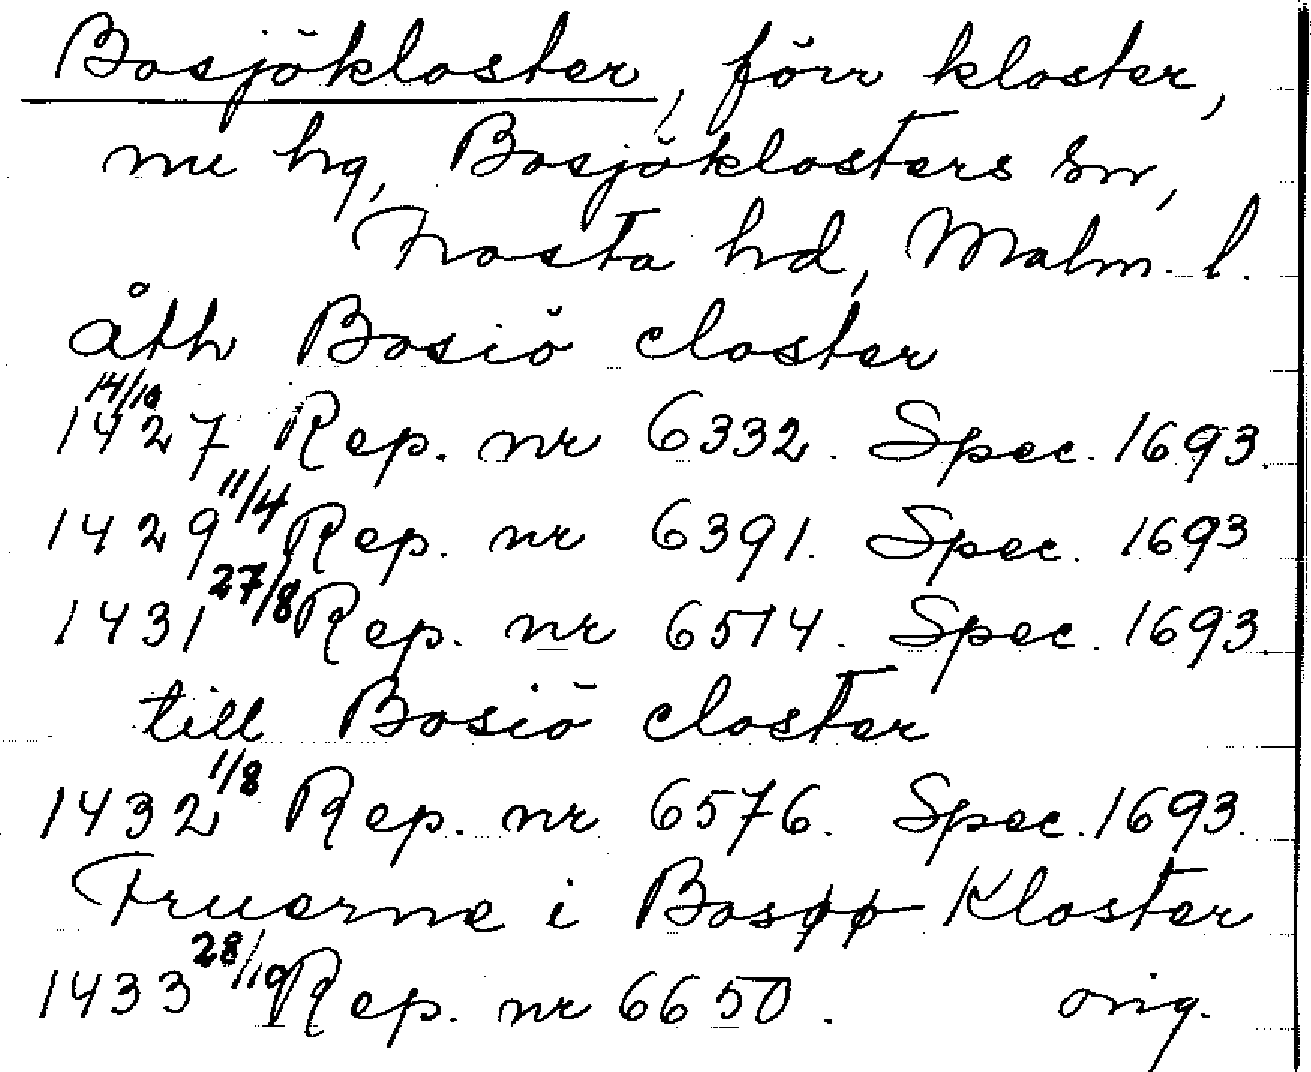 Bosjökloster, förr kloster,
nu hg, Bosjöklosters sn,
Frosta hd, Malm. l.
åth Bosiö closter
1427 14/10 Rep. nr 6332. Spec. 1693.
1429 11/4 Rep. nr 6391. Spec. 1693
1431 27/8 Rep. nr 6514. Spec. 1693.
till Bosiö closter
1432 1/8 Rep. nr 6576. Spec. 1693.
Fruerne i Bosøø Kloster
1433 28/10 Rep. nr 6650. orig.